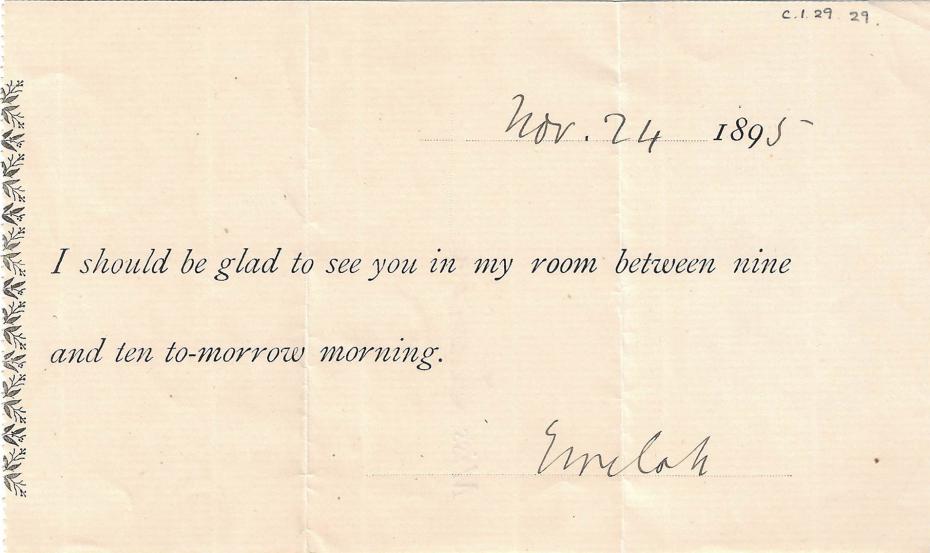 C.1.29 29.
Nov. 24 1895
I should be glad to see you in my room between nine
and ten to-morrow morning.